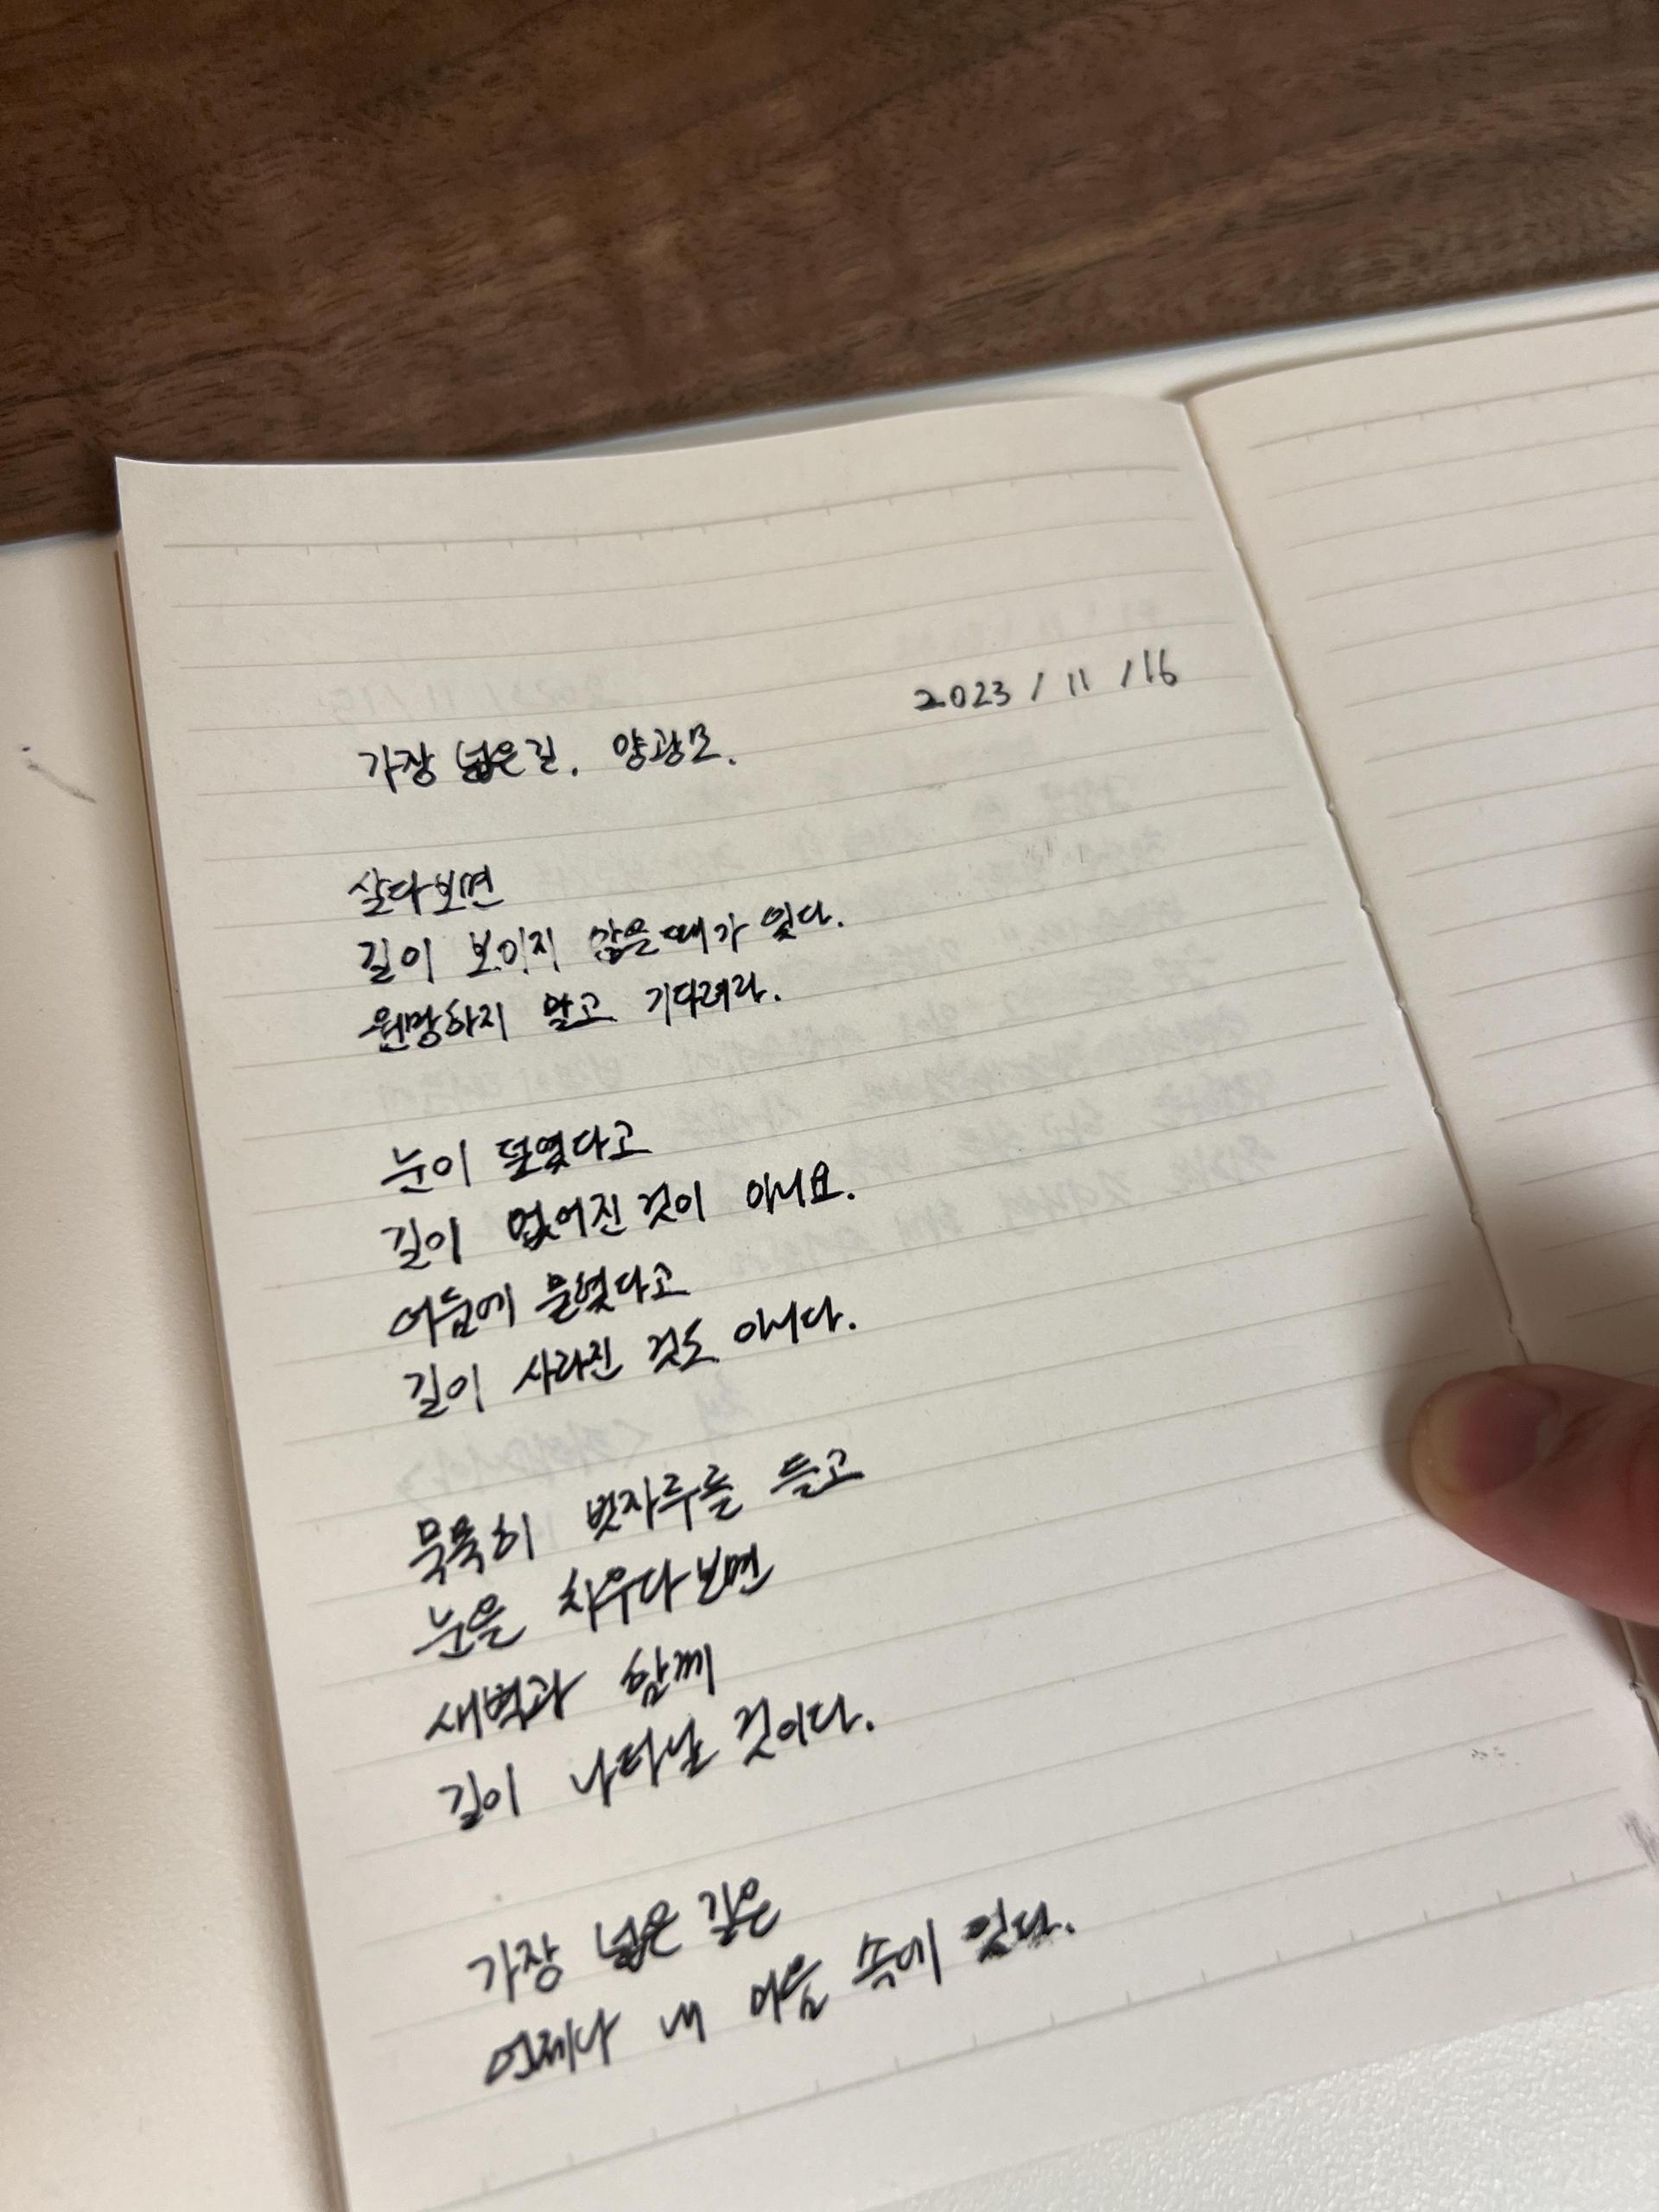 2023 / 11 / 16
가장 넓은길. 양광모.
살다보면
길이 보이지 않을때가 있다.
원망하지 말고 기다려라.
눈이 덮였다고
길이 없어진 것이 아니요.
어둠에 묻혔다고
길이 사라진 것도 아니다.
묵묵히 빗자루를 들고
눈을 치우다보면
새벽과 함께
길이 나타날 것이다.
가장 넓은 길은
언제나 내 마음 속에 있다.